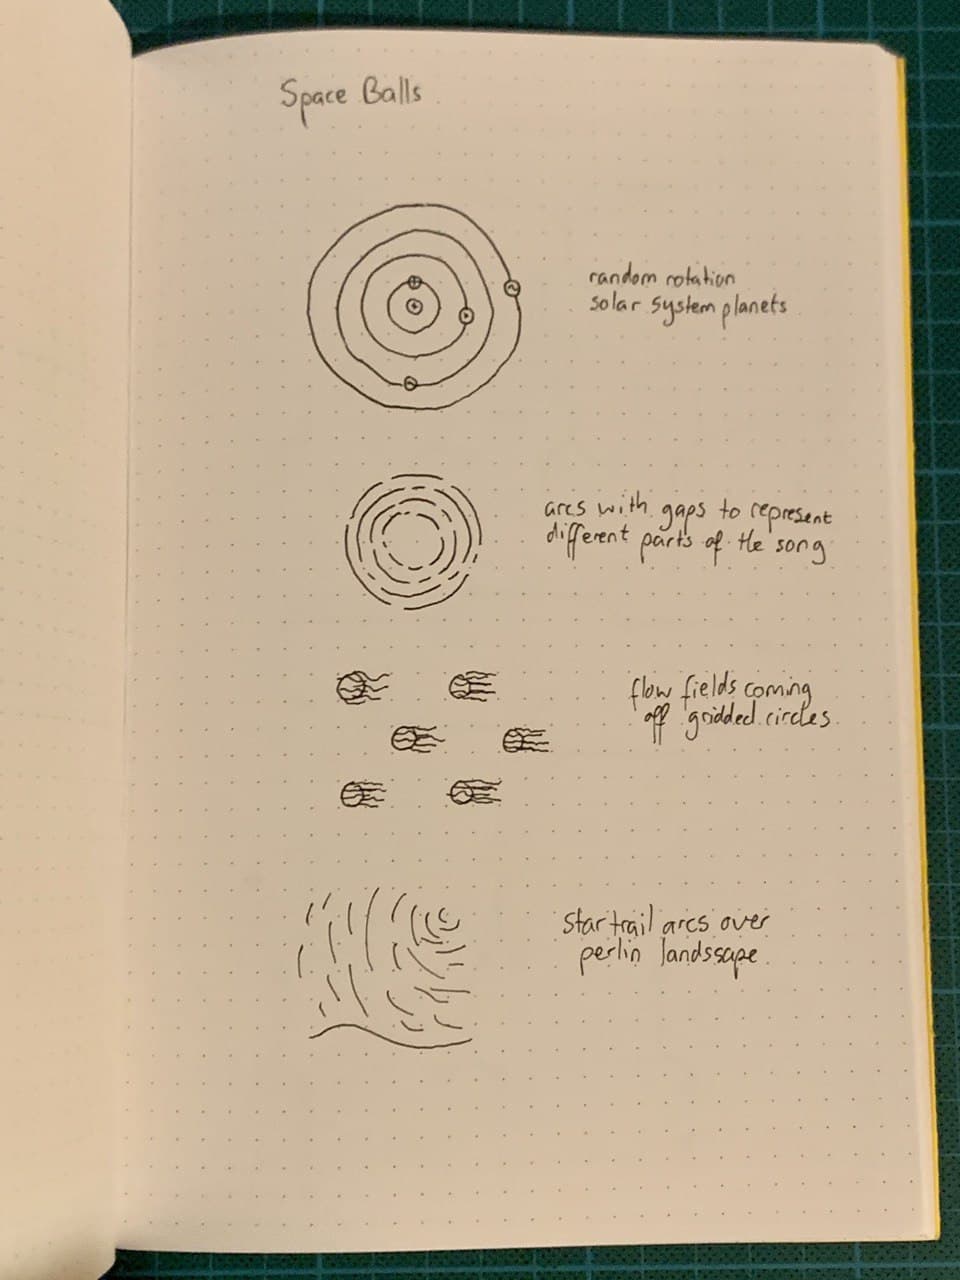 Space Balls
random rotation
solar system planets
arcs with gaps to represent
different parts of the song
flow fields coming
off gridded circles
star trail arcs over
perlin landssape